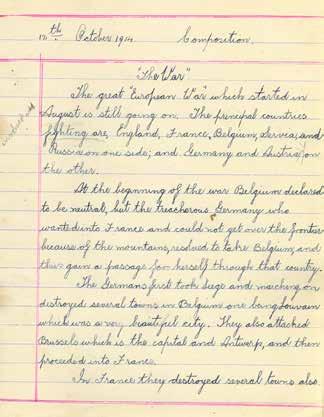 12th October 1914. Composition.
"The War"
The great "European War" which started in
August is still going on. The principal countries
fighting are, England, France, Belgium, Servia, and
Russia on one side; and Germany and Austria, on
the other.
At the beginning of the war Belgium declared
to be neutral, but the treacherous Germany who
wanted into France and could not get over the frontier
because of the mountains, resolved to take Belgium, and
thus gain a passage for herself through that country.
The Germans first took Liege and marching on
destroyed several towns in Belgium one being Louvain
which was a very beautiful city. They also attacked
Brussels which is the capital and Antwerp, and then
proceeded into France.
In France they destroyed several towns also.